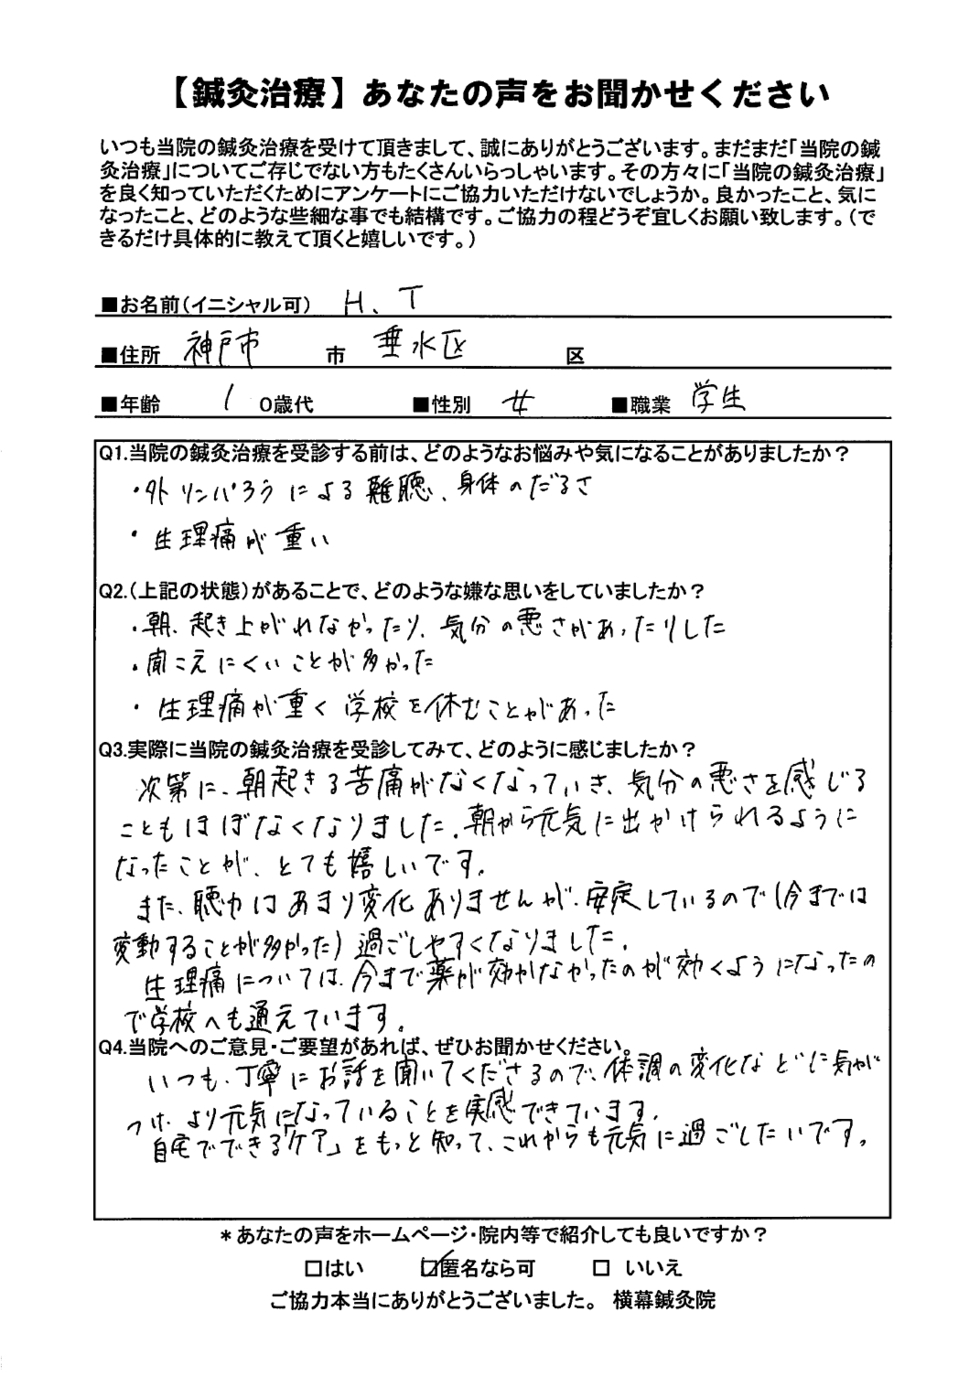 【鍼灸治療】あなたの声をお聞かせください
いつも当院の鍼灸治療を受けて頂きまして、誠にありがとうございます。まだまだ「当院の鍼
灸治療」についてご存じでない方もたくさんいらっしゃいます。その方々に「当院の鍼灸治療」
を良く知っていただくためにアンケートにご協力いただけないでしょうか。良かったこと、気に
なったこと、どのような些細な事でも結構です。ご協力の程どうぞ宜しくお願い致します。（で
きるだけ具体的に教えて頂くと嬉しいです。）
■お名前（イニシャル可） H、T
■住所 神戸市 市 垂水区 区
■年齢 1 0歳代 ■性別 女 ■職業 学生
Q1.当院の鍼灸治療を受診する前は、どのようなお悩みや気になることがありましたか？
・外リンパろうによる難聴、身体のだるさ
・生理痛が重い
Q2.（上記の状態）があることで、どのような嫌な思いをしていましたか？
・朝、起き上がれなかったり、気分の悪さがあったりした
・聞こえにくいことが多かった
・生理痛が重く学校を休むことがあった
Q3.実際に当院の鍼灸治療を受診してみて、どのように感じましたか？
次第に、朝起きる苦痛がなくなっていき、気分の悪さを感じる
こともほぼなくなりました。朝から元気に出かけられるように
なったことが、とても嬉しいです。
また、聴力はあまり変化ありませんが、安定しているので（今までは
変動することが多かった）過ごしやすくなりました。
生理痛については、今まで薬が効かなかったのが効くようになったの
で学校へも通えています。
Q4.当院へのご意見・ご要望があれば、ぜひお聞かせください。
いつも、丁寧にお話を聞いてくださるので、体調の変化などに気が
つけ、より元気になっていることを実感できています。
自宅でできる「ケア」をもっと知って、これからも元気に過ごしたいです。
＊あなたの声をホームページ・院内等で紹介しても良いですか？
□はい ☑匿名なら可 □ いいえ
ご協力本当にありがとうございました。 横幕鍼灸院